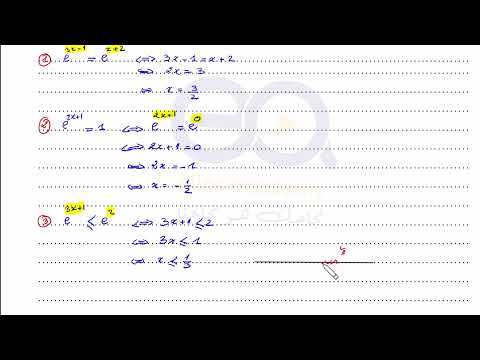 ① e^{3x-1} = e^{x+2} ⇔ 3x-1 = x+2
⇔ 2x = 3
⇔ x = 3/2
② e^{2x+1} = 1 ⇔ e^{2x+1} = e^{0}
⇔ 2x+1 = 0
⇔ 2x = -1
⇔ x = -1/2
③ e^{3x+1} ≤ e^{2} ⇔ 3x+1 ≤ 2
⇔ 3x ≤ 1
⇔ x ≤ 1/3